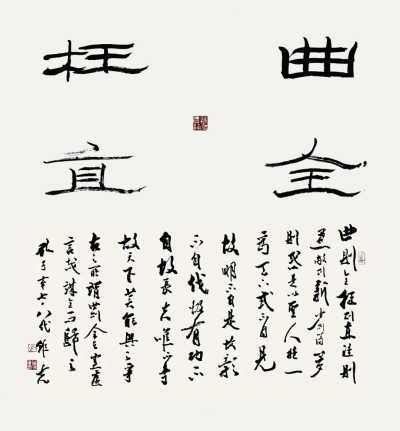 曲全
枉直
曲則全枉則直洼則
盈敝則新少則得多
則惑是以聖人抱一
為天下式不自見
故明不自是故彰
不自伐故有功不
自矜故長夫唯不爭
故天下莫能與之爭
古之所謂曲全者豈虛
言哉誠全而歸之
孔子七十八代